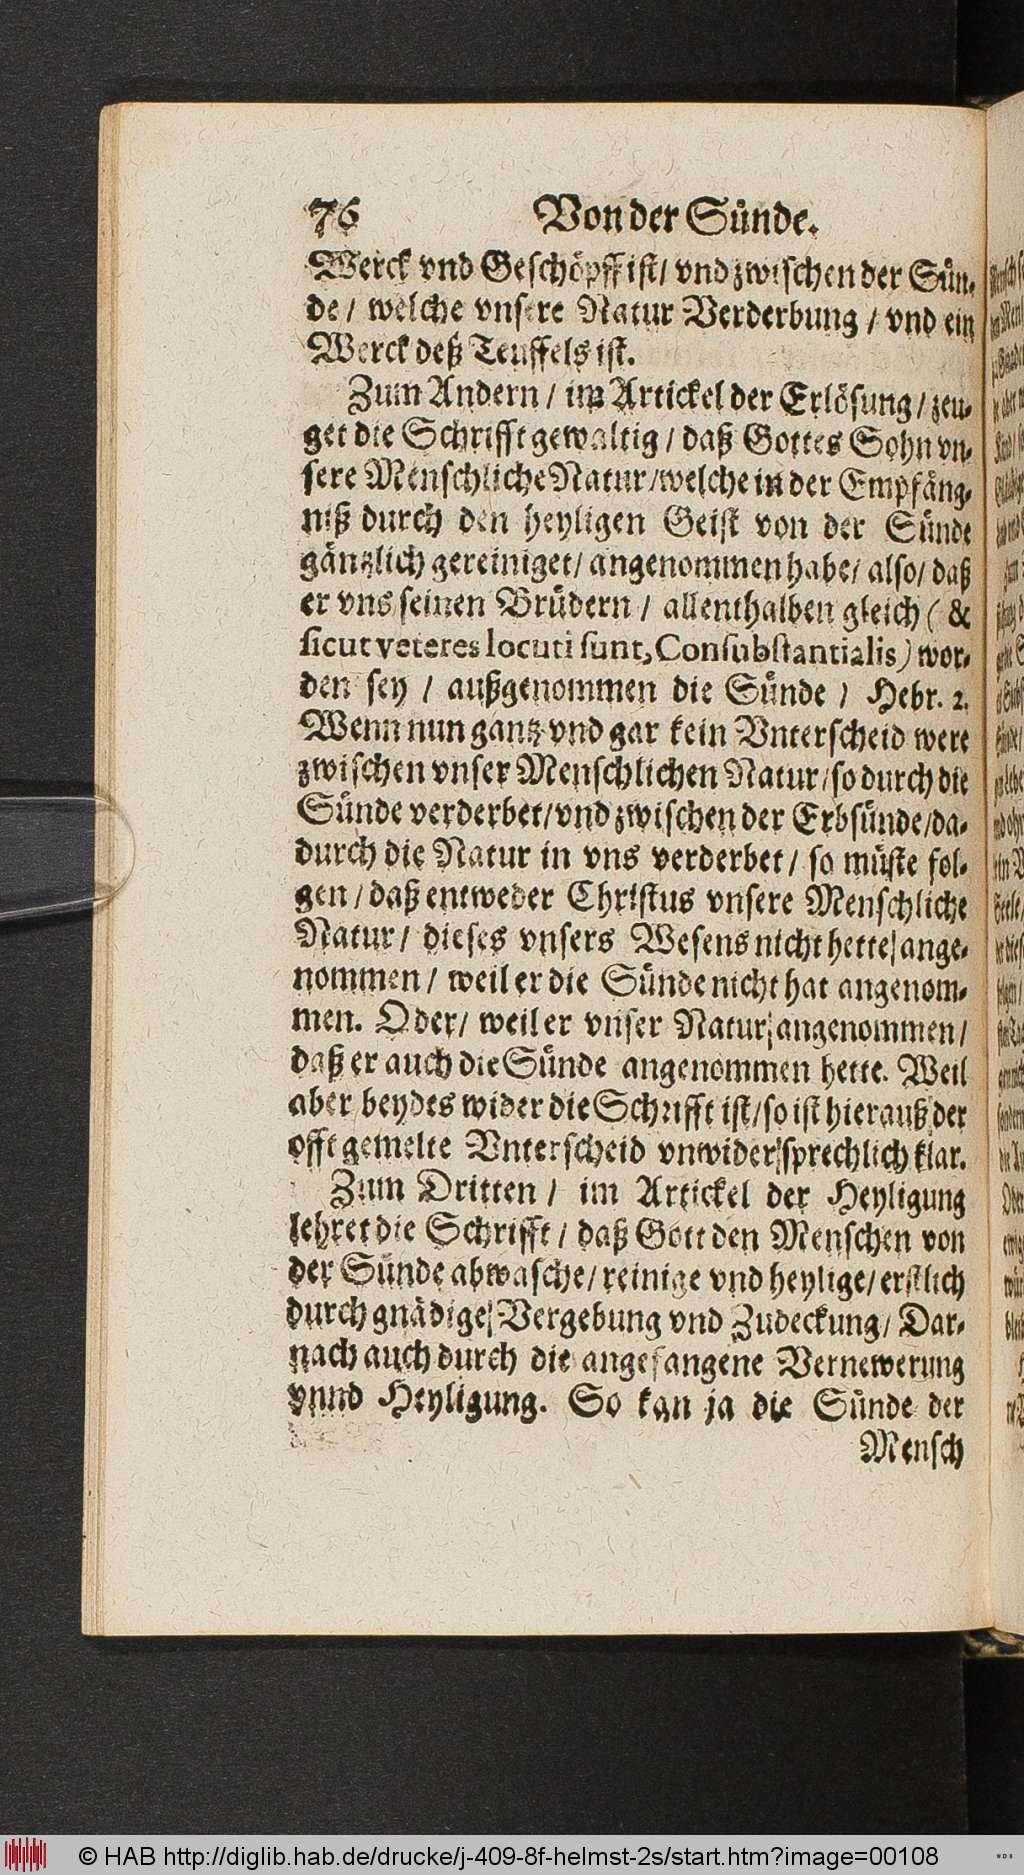 76 Von der Sünde.
Werck vnd Geschöpff ist / vnd zwischen der Sün-
de / welche vnsere Natur Verderbung / vnd ein
Werck deß Teuffels ist.
Zum Andern / im Artickel der Erlösung / zeu-
get die Schrifft gewaltig / daß Gottes Sohn vn-
sere Menschliche Natur / welche in der Empfäng-
niß durch den heyligen Geist von der Sünde
gäntzlich gereiniget / angenommen habe / also / daß
er vns seinen Brüdern / allenthalben gleich ( &
sicut veteres locuti sunt, Consubstantialis ) wor-
den sey / außgenommen die Sünde / Hebr. 2.
Wenn nun gantz vnd gar kein Vnterscheid were
zwischen vnser Menschlichen Natur / so durch die
Sünde verderbet / vnd zwischen der Erbsünde / da-
durch die Natur in vns verderbet / so müste fol-
gen / daß entweder Christus vnsere Menschliche
Natur / dieses vnsers Wesens nicht hette ange-
nommen / weil er die Sünde nicht hat angenom-
men. Oder / weil er vnser Natur angenommen /
daß er auch die Sünde angenommen hette. Weil
aber beydes wider die Schrifft ist / so ist hierauß der
offt gemelte Vnterscheid vnwidersprechlich klar.
Zum Dritten / im Artickel der Heyligung
lehret die Schrifft / daß Gott den Menschen von
der Sünde abwasche / reinige vnd heylige / erstlich
durch gnädige Vergebung vnd Zudeckung / Dar-
nach auch durch die angefangene Vernewerung
vnnd Heyligung. So kan ja die Sünde der
Mensch
© HAB http://diglib.hab.de/drucke/j-409-8f-helmst-2s/start.htm?image=00108